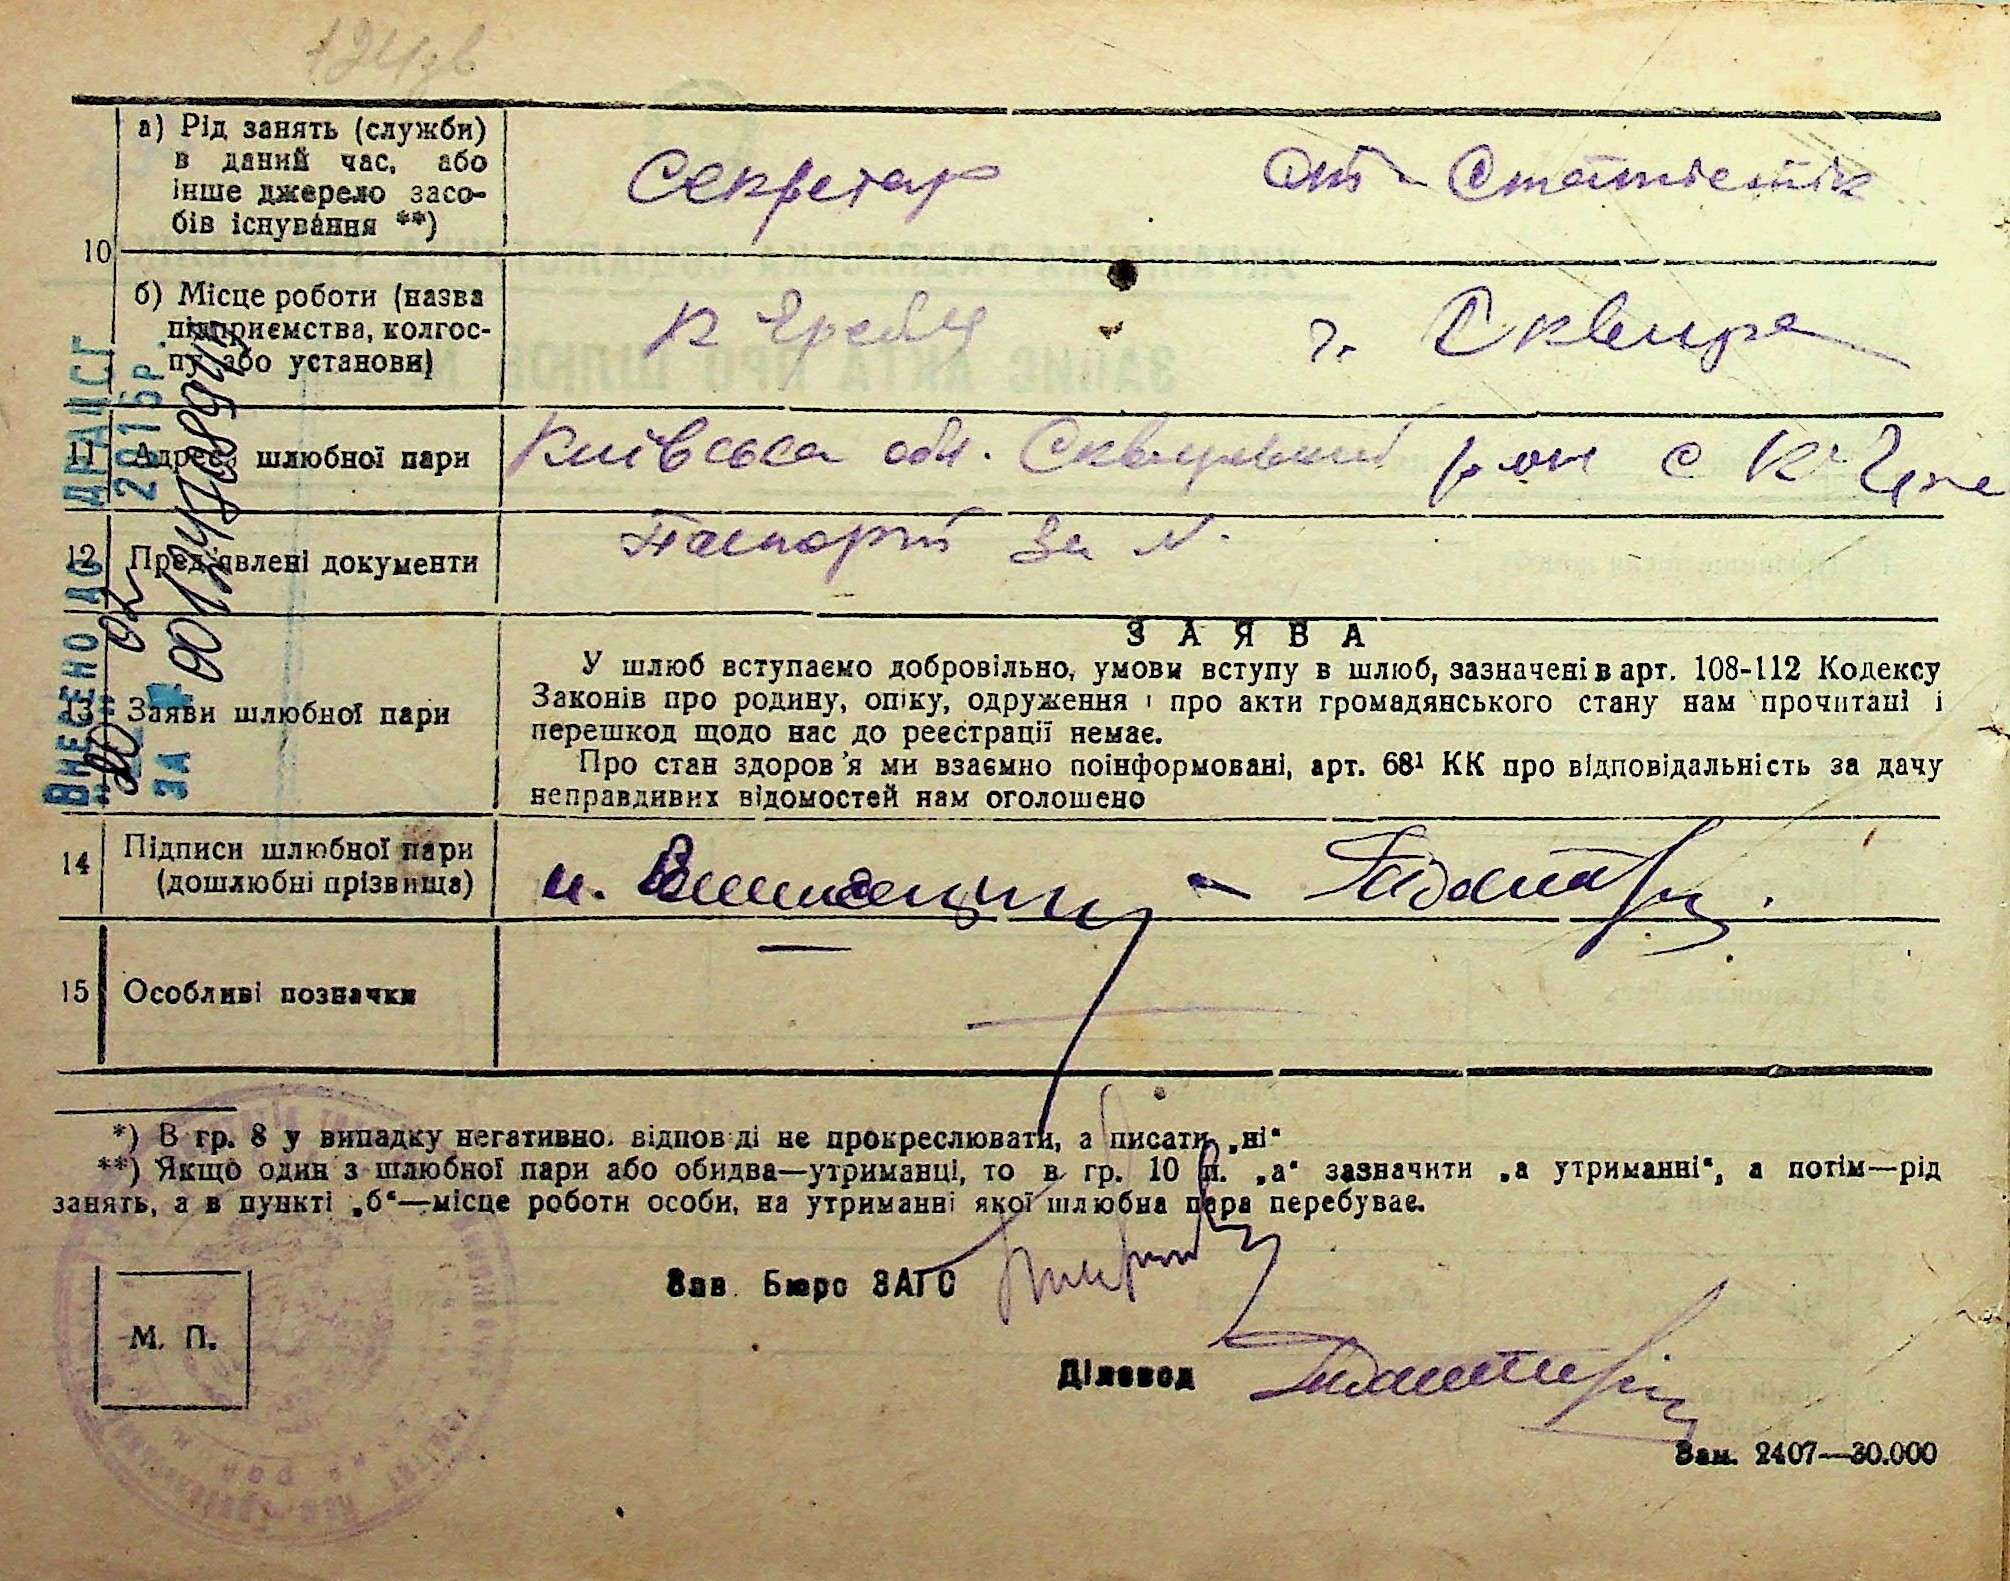 а) Рід занять (служби)
в даний час, або
інше джерело засо-
бів існування **)
Секретар
Статістік
10
б) Місце роботи (назва
підприємства, колгос-
пу або установи)
К Гребля
г. Сквира
11 Адреса шлюбної пари
Київська обл. Сквирський р-он с
12 Пред'явлені документи
Паспорт за №.
13 Заяви шлюбної пари
ЗАЯВА
У шлюб вступаємо добровільно, умови вступу в шлюб, зазначені в арт. 108-112 Кодексу
Законів про родину, опіку, одруження і про акти громадянського стану нам прочитані і
перешкод щодо нас до реєстрації немає.
Про стан здоров'я ми взаємно поінформовані, арт. 68¹ КК про відповідальність за дачу
неправдивих відомостей нам оголошено
14 Підписи шлюбної пари
(дошлюбні прізвища)
15 Особливі позначки
*) В гр. 8 у випадку негативно. відпов ді не прокреслювати, а писати „ні“
**) Якщо один з шлюбної пари або обидва—утриманці, то в гр. 10 п. „а“ зазначити „а утриманні“, а потім—рід
занять, а в пункті „б“—місце роботи особи, на утриманні якої шлюбна пара перебуває.
Зав. Бюро ЗАГС
М. П.
Діловод
Зам. 2407—30.000
Внесено до ДРАЦСГ
2015р.
за № 00124768914